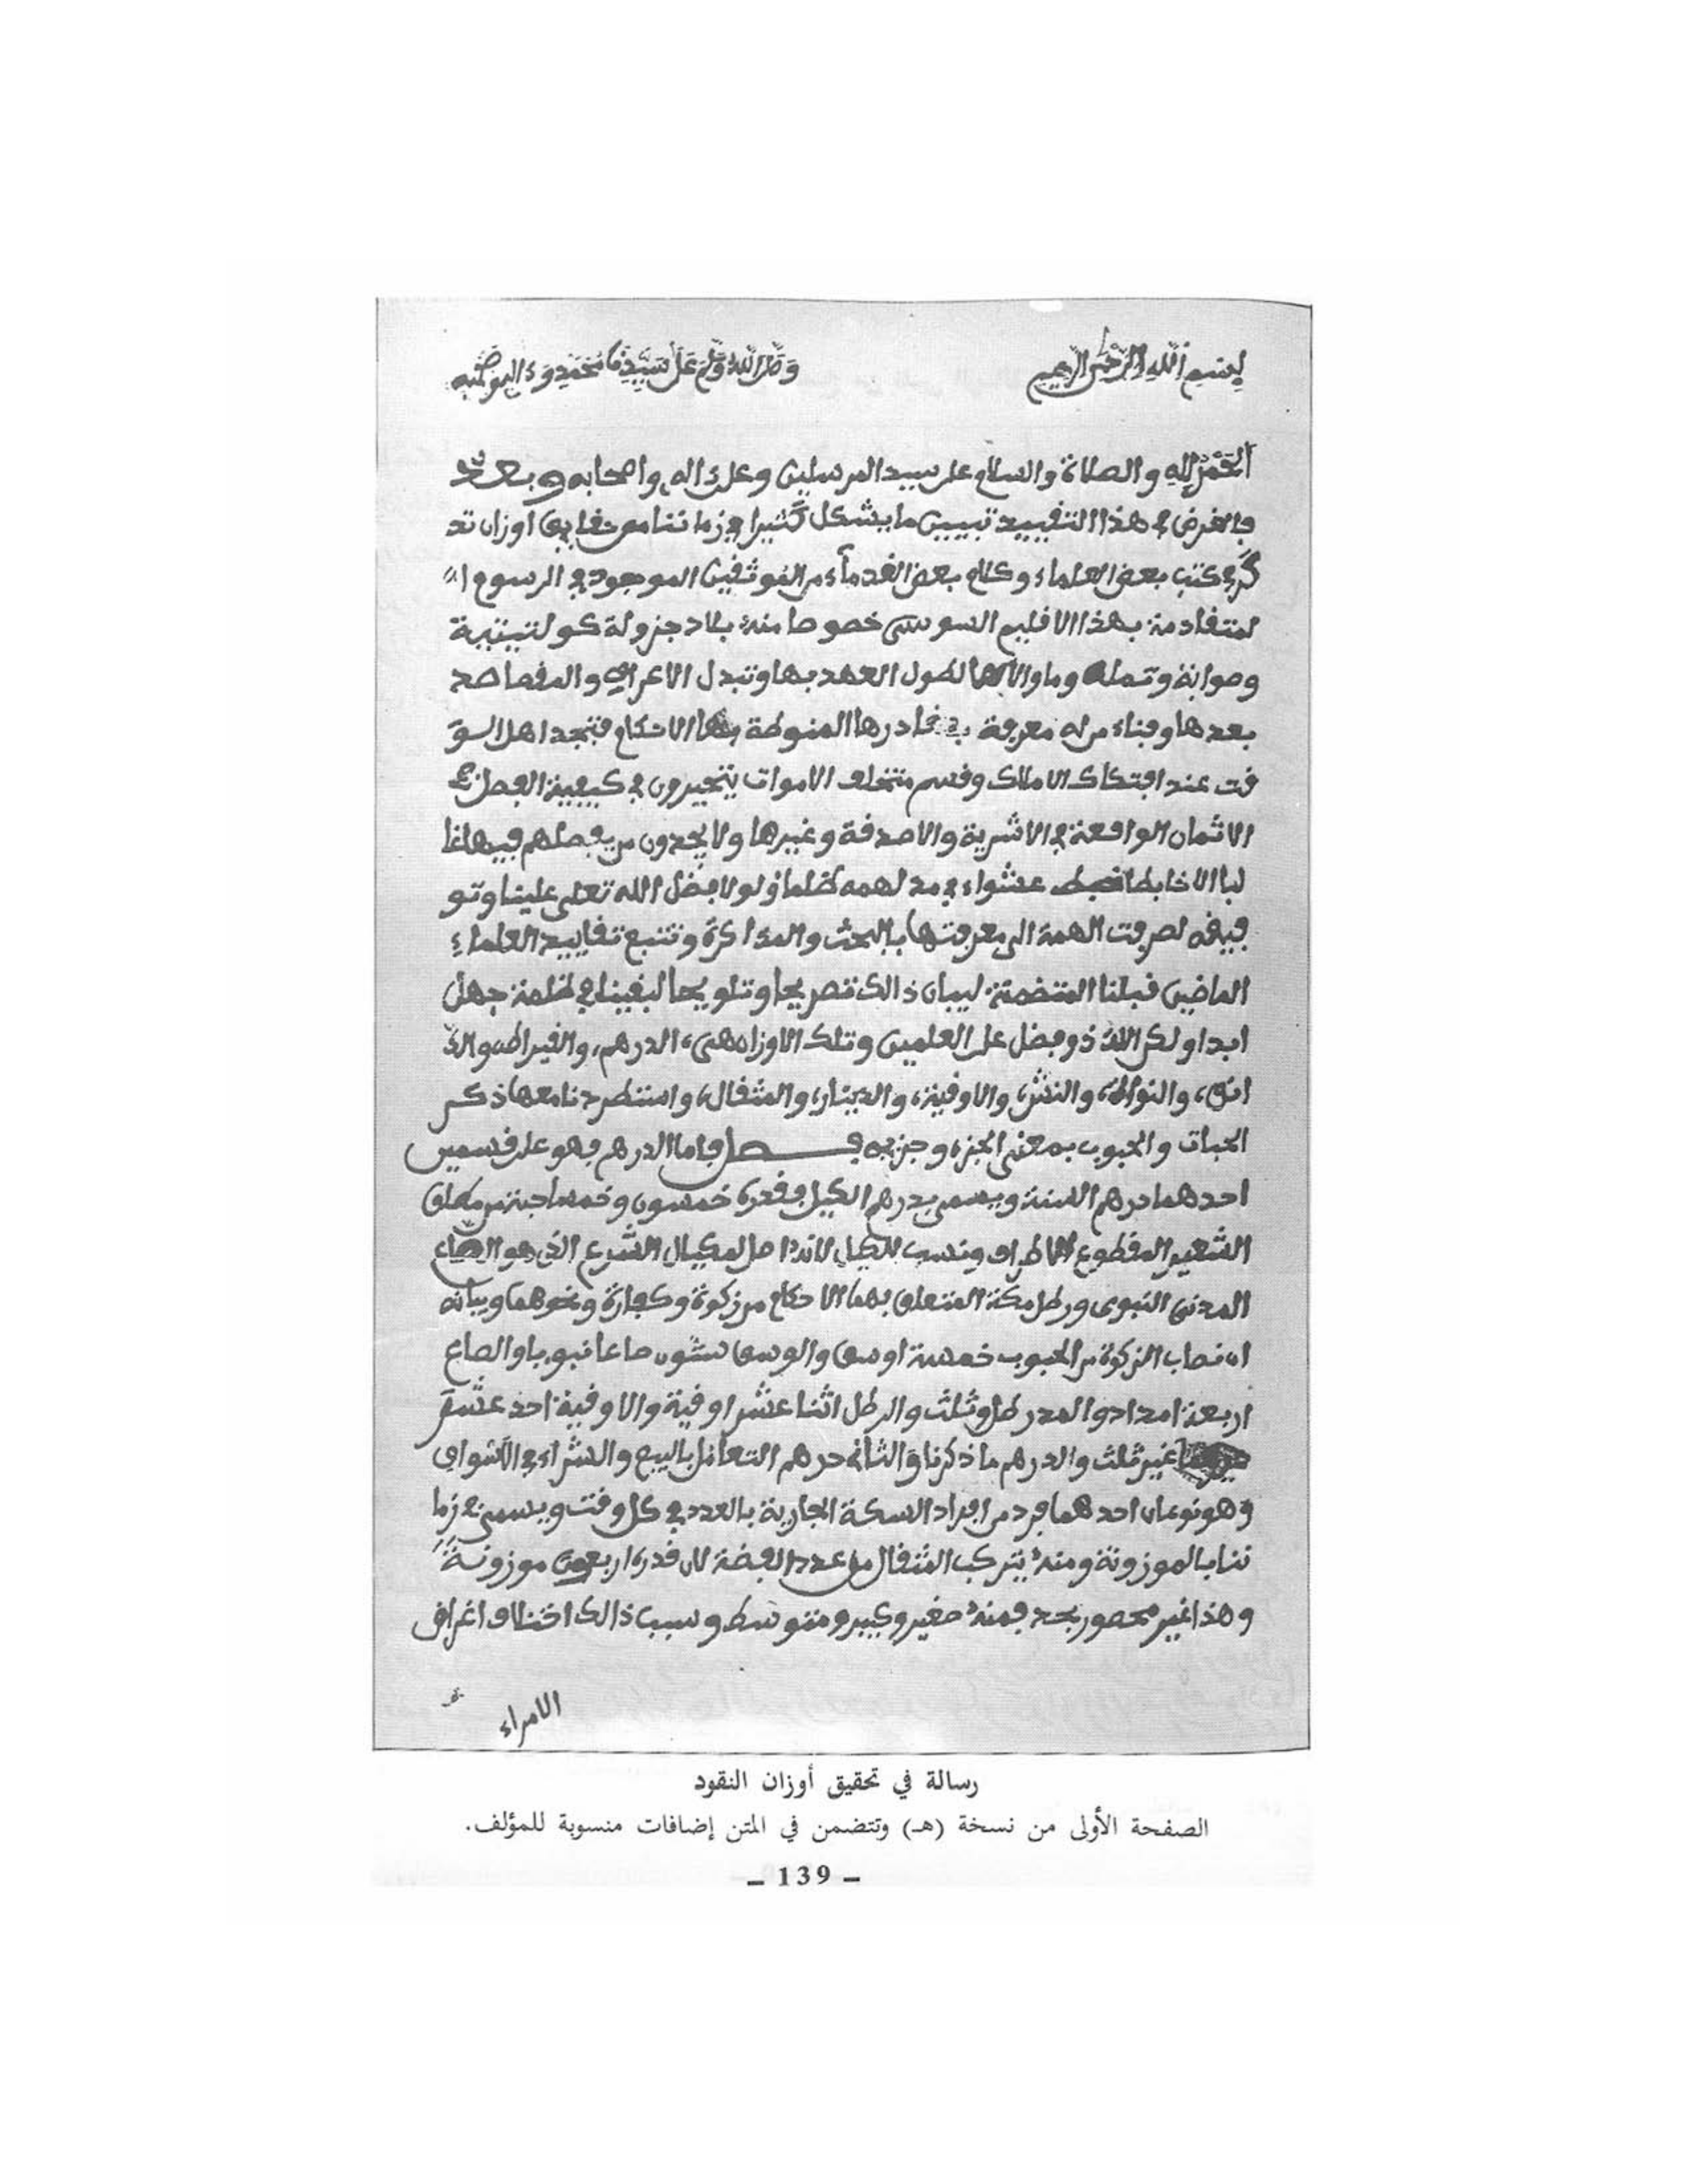 بسم الله الرحمن الرحيم وصلى الله وسلم على سيدنا محمد وءاله وصحبه
الحمد لله والصلاة والسلام على سيد المرسلين وعلى ءاله واصحابه وبعد
فالغرض في هذا التقييد تبيين ما يشكل كثيرا في زماننا من حقايق اوزان تذ
كر في كتب بعض العلماء وكلام بعض القدماء من الموثقين الموجود في الرسوم ا
لمتقادمة بهذا الاقليم السوسي خصوصا منه بلاد جزولة كولتيتية
وصوابة وتملة وما والاها لطول العهد بها وتبدل الاعراف والمقاصد
بعدها وفناء من له معرفة بمقادرها المنوطة بها الاحكام فتجد اهل السو
قت عند افتكاك الاملاك وقسم متخلف الاموات يتحيرون في كيفية الفصل في
الاثمان الواقعة في الاشرية والاصدقة وغيرها ولا يجدون من يفصلهم فيها غا
لبا الا خابطا خبط عشواء في مدلهمه ظلما ولولا فضل الله تعلى علينا وتو
فيقه لصرفت الهمة الى معرفتها بالبحث والمذاكرة وتتبع تقاييد العلماء
الماضين قبلنا المتضمنة لبيان ذالك تصريحا وتلويحا لبقينا في ظلمة جهل
ابدا ولكن الله ذو فضل على العلمين وتلك الاوزان هى، الدرهم، والقيراط، والد
انق، والنواة، والنش، والاوقية، والدينار، والمثقال، واستطردنا معها ذكر
الحبات والحبوب بمعنى الجزء وجزيه فصل فاما الدرهم فهو على قسمين
احدهما درهم السنة ويسمى بدرهم الكيل وقدره خمسون وخمسا حبة من مطلق
الشعير المقطوع الاطراف ونسب للكيل لانه اصل لمكيال الشرع الذي هو الصاع
المدنى النبوى ورطل مكة المتعلق بهما الاحكام من زكوة وكفارة ونحوهما وبيانه
ان نصاب الزكوة من الحبوب خمسة اوسق والوسق ستون صاعا نبويا والصاع
اربعة امداد والمد رطل وثلث والرطل اثنا عشر اوقية والاوقية احد عشر
غير ثلث والدرهم ما ذكرنا والثاني درهم التعامل بالبيع والشراء في الاسواق
وهو نوعان احدهما فرد من افراد السكة الجارية بالعدد في كل وقت ويسمى في زما
ننا بالموزونة ومنه يتركب المثقال من عدد الفضة لان قدره اربعون موزونة
وهذا غير محصور بحد فمنه صغير وكبير ومتوسط وسبب ذالك اختلاف اغراض
الامراء
رسالة في تحقيق أوزان النقود
الصفحة الأولى من نسخة (هـ) وتتضمن في المتن إضافات منسوبة للمؤلف.
– 139 –